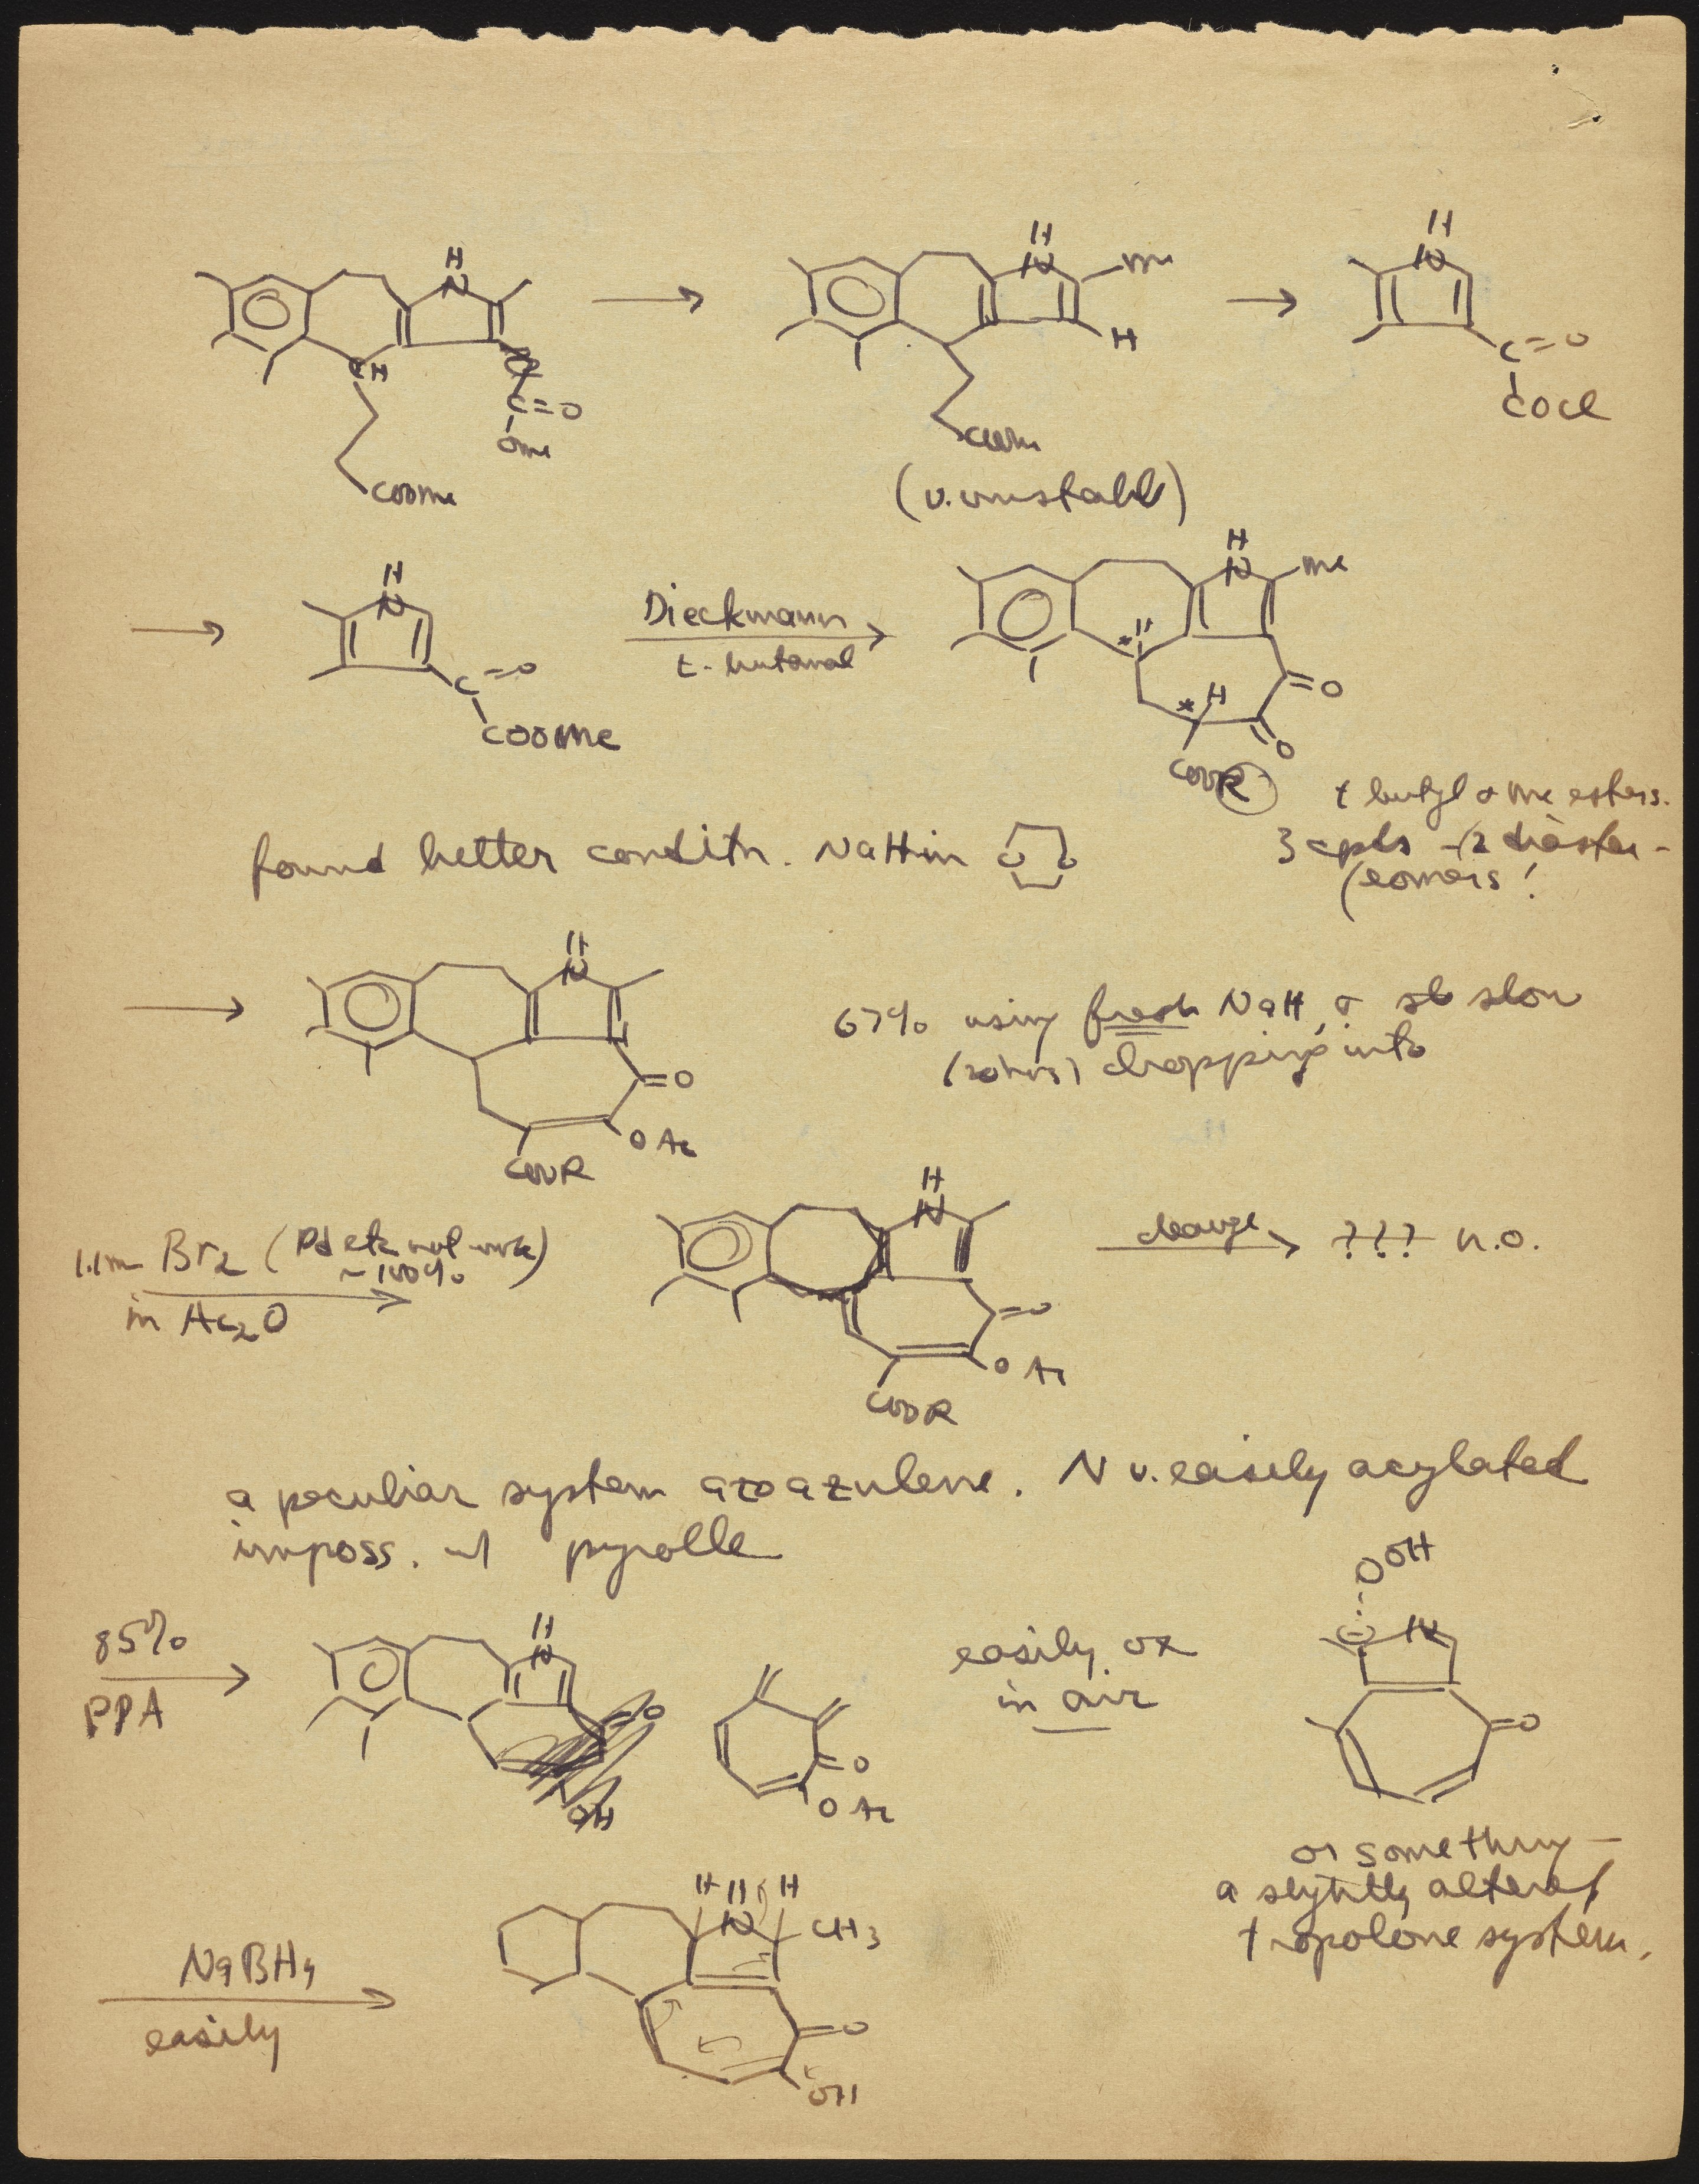 H
N
CH
C=O
OMe
COOMe
H
N
Me
H
COOMe
(v. unstable)
H
N
C=O
COCl
H
N
C=O
COOMe
Dieckmann
t-butanol
H
N
Me
* H
* H
O
O
COOR
t butyl & Me esters.
3 cpds - (2 diaster-
eomers!
found better conditn. NaH in O O
H
N
O
OAc
COOR
67% using fresh NaH, & slow
(20 hrs) dropping into
1.1m Br2 (Pd etc not work)
~100%
in Ac2O
H
N
O
OAc
COOR
change
??? n.o.
a peculiar system azoazulene. N v. easily acylated
imposs. w/ pyrolle
85%
PPA
H
N
O
OH
O
OAc
easily ox
in air
OOH
N
O
or something -
a slightly altered
tropolone system.
NaBH4
easily
H H H
N
CH3
O
OH